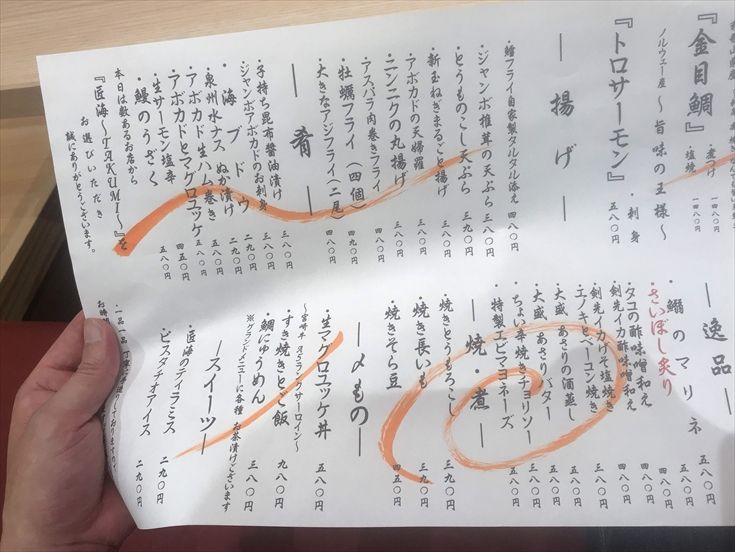 『金目鯛』
・煮付
・塩焼
一四八〇円
一四八〇円
ノルウェー産 ～旨味の王様～
『トロサーモン』
・刺身
― 揚げ ―
・鱚フライ自家製タルタル添え 四八〇円
・ジャンボ椎茸の天ぷら 三八〇円
・とうものこし天ぷら 三九〇円
・新玉ねぎまるごと揚げ 三八〇円
・アボカドの天婦羅 三八〇円
・ニンニクの丸揚げ 三八〇円
・アスパラ肉巻きフライ 四八〇円
・牡蠣フライ(四個) 四八〇円
・大きなアジフライ(二尾)
― 肴 ―
・子持ち昆布醤油漬け 三八〇円
・ジャンボアボカドのお刺身 三八〇円
・海ブドウ 二九〇円
・泉州水ナス ぬか漬け 二九〇円
・アボカド生ハム巻き 五八〇円
・アボカドとマグロユッケ 五八〇円
・生サーモン塩辛 四五〇円
・鰻のうざく 五八〇円
本日は数あるお店から
『匠海～TAKUMI～』を
お選びいただき
誠にありがとうございます。
― 逸品 ―
・鰯のマリネ 五八〇円
・さいぼし炙り 五八〇円
・タコの酢味噌和え 四八〇円
・剣先イカ酢味噌和え 四八〇円
・剣先イカげそ塩焼き
・エノキとベーコン焼き
・大盛 あさりの酒蒸し 五八〇円
・大盛 あさりバター 五八〇円
・ちょい辛焼きチョリソー
・特製エビマヨネーズ
― 焼・煮 ―
・焼きとうもろこし 三九〇円
・焼き長いも 三九〇円
・焼きそら豆 四五〇円
― 〆もの ―
・生マグロユッケ丼 五八〇円
～宮崎牛 A5ランクサーロイン～
・すき焼きとじ飯 九八〇円
・鯛にゅうめん 三八〇円
※グランドメニューに各種 お茶漬けございます
― スイーツ ―
・匠海のティラミス 二九〇円
・ピスタチオアイス 二九〇円